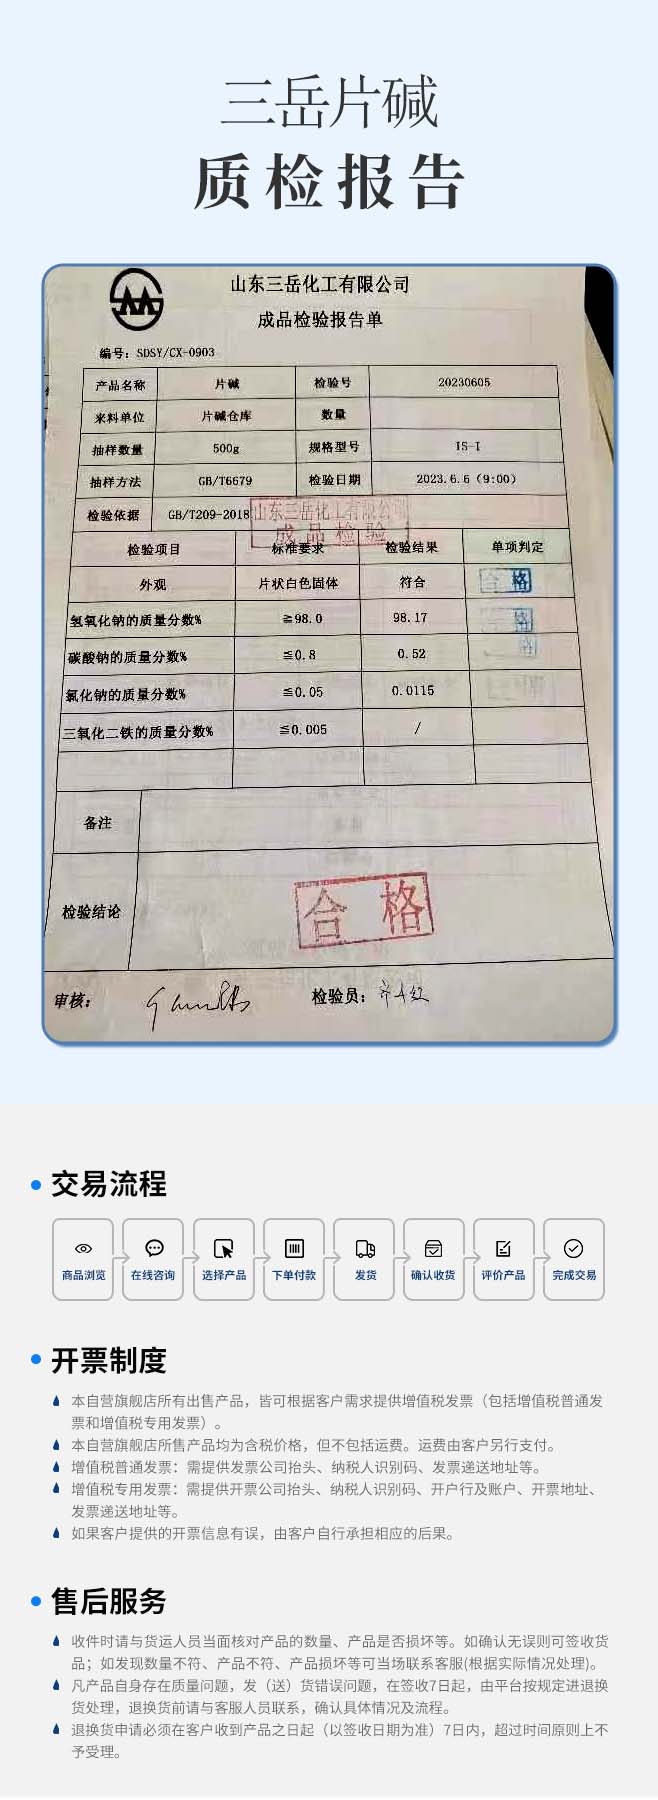 三岳片碱
质检报告
山东三岳化工有限公司
成品检验报告单
编号：SDSY/CX-0903
产品名称 片碱 检验号 20230605
来料单位 片碱仓库 数量
抽样数量 500g 规格型号 IS-I
抽样方法 GB/T6679 检验日期 2023.6.6（9:00）
检验依据 GB/T209-2018
山东三岳化工有限公司
成品检验
检验项目 标准要求 检验结果 单项判定
外观 片状白色固体 符合 合格
氢氧化钠的质量分数% ≧98.0 98.17 合格
碳酸钠的质量分数% ≦0.8 0.52
氯化钠的质量分数% ≦0.05 0.0115
三氧化二铁的质量分数% ≦0.005 /
备注
检验结论 合格
审核： 检验员：
交易流程
商品浏览 在线咨询 选择产品 下单付款 发货 确认收货 评价产品 完成交易
开票制度
本自营旗舰店所有出售产品，皆可根据客户需求提供增值税发票（包括增值税普通发
票和增值税专用发票）。
本自营旗舰店所售产品均为含税价格，但不包括运费。运费由客户另行支付。
增值税普通发票：需提供发票公司抬头、纳税人识别码、发票递送地址等。
增值税专用发票：需提供开票公司抬头、纳税人识别码、开户行及账户、开票地址、
发票递送地址等。
如果客户提供的开票信息有误，由客户自行承担相应的后果。
售后服务
收件时请与货运人员当面核对产品的数量、产品是否损坏等。如确认无误则可签收货
品；如发现数量不符、产品不符、产品损坏等可当场联系客服(根据实际情况处理)。
凡产品自身存在质量问题，发（送）货错误问题，在签收7日起，由平台按规定进退换
货处理，退换货前请与客服人员联系，确认具体情况及流程。
退换货申请必须在客户收到产品之日起（以签收日期为准）7日内，超过时间原则上不
予受理。